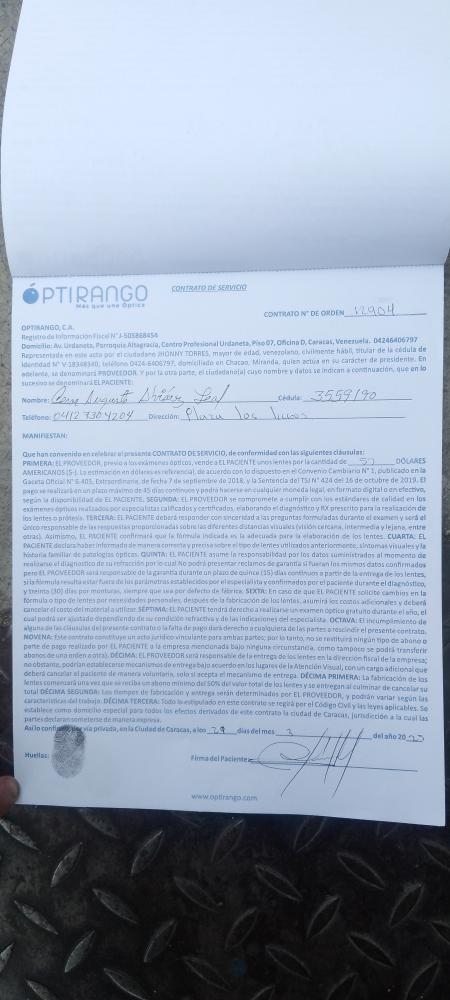 ÓPTIRANGO
Más que una Óptica
CONTRATO DE SERVICIO
CONTRATO N° DE ORDEN 12904
OPTIRANGO, C.A.
Registro de Información Fiscal N° J-505868454
Domicilio: Av. Urdaneta, Parroquia Altagracia, Centro Profesional Urdaneta, Piso 07, Oficina D, Caracas, Venezuela. 04246406797
Representada en este acto por el ciudadano JHONNY TORRES, mayor de edad, venezolano, civilmente hábil, titular de la cédula de
Identidad N° V-18348340, teléfono 0424-6406797, domiciliado en Chacao, Miranda, quien actúa en su carácter de presidente. En
adelante, se denominará PROVEEDOR. Y por la otra parte, el ciudadano(a) cuyo nombre y datos se indican a continuación, que en lo
sucesivo se denominará EL PACIENTE:
Nombre: Cesar Augusto Leal Cédula: 3559190
Teléfono: 0412 730 4204 Dirección: Plaza los
MANIFIESTAN:
Que han convenido en celebrar el presente CONTRATO DE SERVICIO, de conformidad con las siguientes cláusulas:
PRIMERA: EL PROVEEDOR, previo a los exámenes ópticos, vende a EL PACIENTE unos lentes por la cantidad de DÓLARES
AMERICANOS ($-). La estimación en dólares es referencial, de acuerdo con lo dispuesto en el Convenio Cambiario N° 1, publicado en la
Gaceta Oficial N° 6.405, Extraordinaria, de fecha 7 de septiembre de 2018, y la Sentencia del TSJ N° 424 del 16 de octubre de 2019. El
pago se realizará en un plazo máximo de 45 días continuos y podrá hacerse en cualquier moneda legal, en formato digital o en efectivo,
según la disponibilidad de EL PACIENTE. SEGUNDA: EL PROVEEDOR se compromete a cumplir con los estándares de calidad en los
exámenes ópticos realizados por especialistas calificados y certificados, elaborando el diagnóstico y RX prescrito para la realización de
los lentes o prótesis. TERCERA: EL PACIENTE deberá responder con sinceridad a las preguntas formuladas durante el examen y será el
único responsable de las respuestas proporcionadas sobre las diferentes distancias visuales (visión cercana, intermedia y lejana, entre
otras). Asimismo, EL PACIENTE confirmará que la fórmula indicada es la adecuada para la elaboración de los lentes. CUARTA: EL
PACIENTE declara haber informado de manera correcta y precisa sobre el tipo de lentes utilizados anteriormente, síntomas visuales y la
historia familiar de patologías ópticas. QUINTA: EL PACIENTE asume la responsabilidad por los datos suministrados al momento de
realizarse el diagnostico de su refracción por lo cual No podrá presentar reclamos de garantía si fueran los mismos datos confirmados
pero EL PROVEEDOR será responsable de la garantía durante un plazo de quince (15) días continuos a partir de la entrega de los lentes,
si la fórmula resulta estar fuera de los parámetros establecidos por el especialista y confirmados por el paciente durante el diagnóstico,
y treinta (30) días por monturas, siempre que sea por defecto de fábrica. SEXTA: En caso de que EL PACIENTE solicite cambios en la
fórmula o tipo de lentes por necesidades personales, después de la fabricación de los lentes, asumirá los costos adicionales y deberá
cancelar el costo del material a utilizar. SÉPTIMA: EL PACIENTE tendrá derecho a realizarse un examen óptico gratuito durante el año, el
cual podrá ser ajustado dependiendo de su condición refractiva y de las indicaciones del especialista. OCTAVA: El incumplimiento de
alguna de las cláusulas del presente contrato o la falta de pago dará derecho a cualquiera de las partes a rescindir el presente contrato.
NOVENA: Este contrato constituye un acto jurídico vinculante para ambas partes; por lo tanto, no se restituirá ningún tipo de abono o
parte de pago realizado por EL PACIENTE a la empresa mencionada bajo ninguna circunstancia, como tampoco se podrá transferir
abonos de una orden a otra). DÉCIMA: EL PROVEEDOR será responsable de la entrega de los lentes en la dirección fiscal de la empresa;
no obstante, podrían establecerse mecanismos de entrega bajo acuerdo en los lugares de la Atención Visual), con un cargo adicional que
deberá cancelar el paciente de manera voluntaria, solo si acepta el mecanismo de entrega. DÉCIMA PRIMERA: La fabricación de los
lentes comenzará una vez que se reciba un abono mínimo del 50% del valor total de los lentes y se entregan al culminar de cancelar su
total DÉCIMA SEGUNDA: Los tiempos de fabricación y entrega serán determinados por EL PROVEEDOR, y podrán variar según las
características del trabajo: DÉCIMA TERCERA: Todo lo estipulado en este contrato se regirá por el Código Civil y las leyes aplicables. Se
establece como domicilio especial para todos los efectos derivados de este contrato la ciudad de Caracas, jurisdicción a la cual las
partes declaran someterse de manera expresa.
Así lo confirmo por vía privada, en la Ciudad de Caracas, a los días del mes 3 del año 20
Huellas:
Firma del Paciente:
www.optirango.com